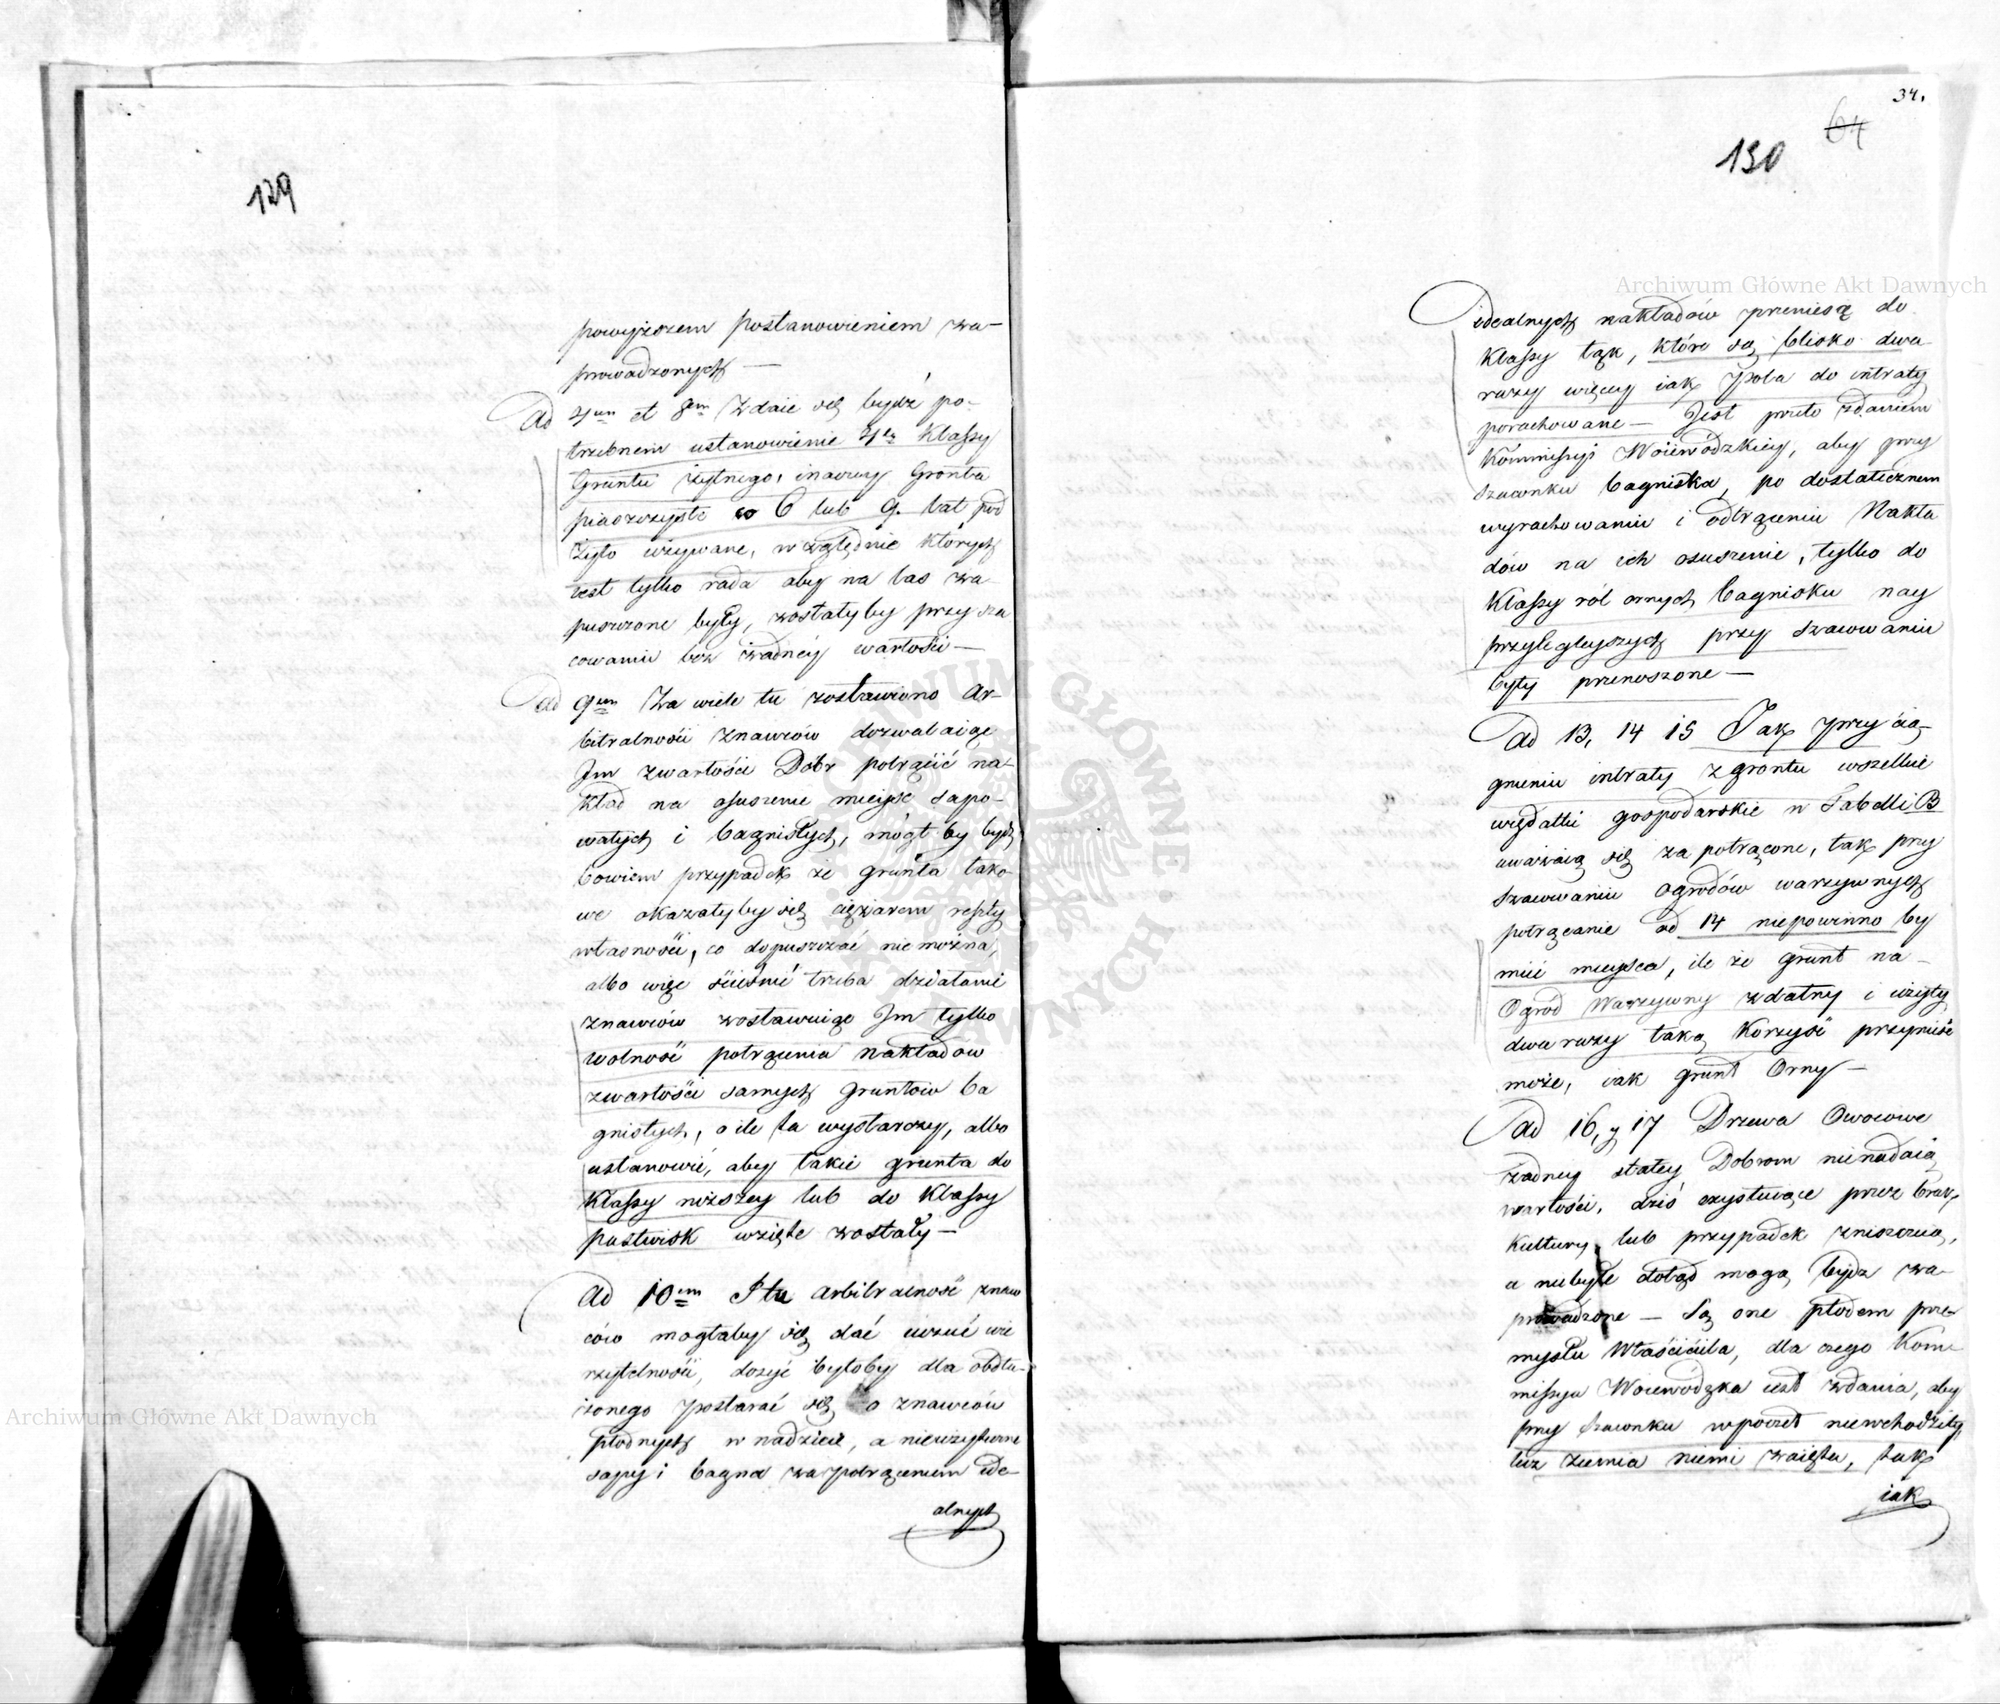 129
powyższem postanowieniem za-
prowadzonych —
Ad 4um et 8em Zdaie się bydź po-
trzebnem ustanowienie 4tey Klassy
Gruntu żytnego, inaczey Gronta
piaszczyste co 6 lub 9. lat pod
Żyto używane, względnie których
iest tylko rada aby na las za-
puszczone były, zostałyby przy sza
cowaniu bez żadnéy wartości —
Ad 9um Za wiele tu zostawiono Ar-
bitralności znawców dozwalaiąc
Im zwartości Dóbr potrącić na-
kład na osuszenie mieysc sapo-
watych i bagnistych, mógł by bydź
bowiem przypadek że grunta tako-
we okazałyby się ciężarem reszty
własności, co dopuszczać nie można,
albo więc ścieśnić trzeba działanie
znawców zostawuiąc Im tylko
wolność potrącenia nakładów
zwartości samych gruntów ba
gnistych, o ile ta wystarczy, albo
ustanowić, aby takie grunta do
Klassy niższey lub do Klassy
pastwisk wzięte zostały —
Ad 10um I tu arbitralność znaw
ców mogłaby się dać uczuć wie
rzytelności, dosyć byłoby dla obdłu-
żonego postarać się o znawców
płodnych w nadzieie, a nieużyteczne
sapy i bagna za potrąceniem ide-
alnych
34.
64
130
idealnych nakładów przeniesą do
Klassy łąk, które są blisko dwa
razy więcey iak pola do intraty
porachowane — Jest przeto zdaniem
Kommissyi Woiewódzkiey, aby przy
szacunku bagniska, po dostatecznem
wyrachowaniu i odtrąceniu Nakła
dów na ich osuszenie, tylko do
Klassy ról ornych bagnisku nay
przyległeyszych przy szacowaniu
były przenoszone —
Ad 13, 14 15 Jak przy cią-
gnieniu intraty z grontu wszelkie
wydatki gospodarskie w Tabelli B
uważaią się za potrącone, tak przy
szacowaniu Ogrodów warzywnych
potrącanie ad 14 niepowinno by
mieć mieysca, ile że grunt na-
Ogród Warzywny zdatny i użyty
dwa razy taką Korzyść przynieść
może, iak grunt Orny —
Ad 16, y 17 Drzewa Owocowe
żadney stałey Dobrom nienadaią
wartości, dziś exystuiące przez brak
Kultury, lub przypadek zniszczeią,
a niebyłe dotąd mogą bydz za-
prowadzone — Są one płodem prze-
mysłu Właściciela, dla czego Kom-
missya Woiewódzka iest zdania, aby
przy szacunku wpoczet niewchodziły
lecz ziemia niemi zaięta, tak
iak
Archiwum Główne Akt Dawnych
Archiwum Główne Akt Dawnych
ARCHIWUM GŁÓWNE AKT DAWNYCH